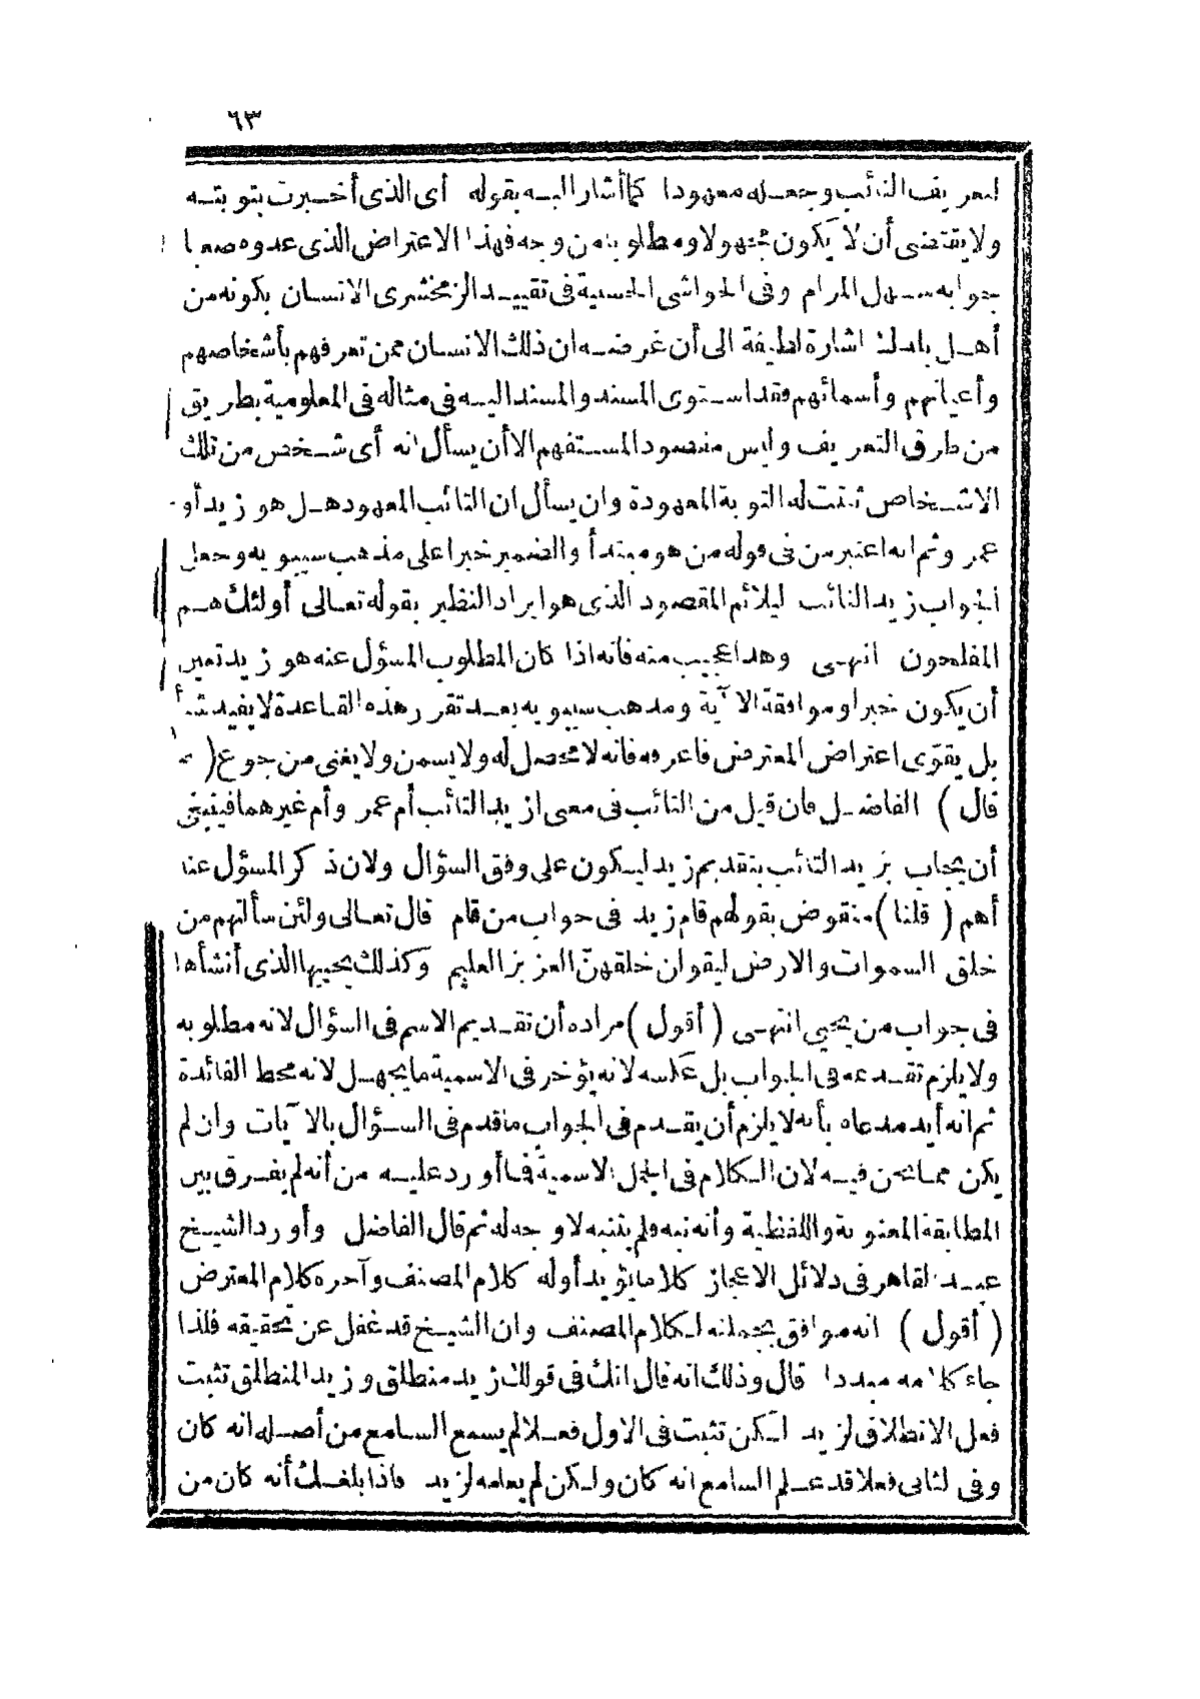 ٦٣
لتعريف التائب وجعله معهودا كما أشار اليه بقوله أى الذى أخبرت بتوبته
ولا يقتضى أن لا يكون مجهولا ومطلوبا من وجه فهذا الاعتراض الذى عدوه صعبا
جوابه سهل المرام وفى الحواشى الحسنية فى تقييد الزمخشرى الانسان بكونه من
أهل بلدك اشارة لطيفة الى أن غرضه ان ذلك الانسان ممن تعرفهم بأشخاصهم
وأعيانهم وأسمائهم فقد استوى المسند والمسند اليه فى مثاله فى المعلومية بطريق
من طرق التعريف وليس مقصود المستفهم الا أن يسأل انه أى شخص من تلك
الاشخاص ثبتت له التوبة المعهودة وان يسأل ان التائب المعهود هل هو زيد أو
عمر وثم انه اعتبر من فى قوله من هو مبتدأ والضمير خبرا على مذهب سيبويه وجعل
الجواب زيد التائب ليلائم المقصود الذى هو ايراد النظير بقوله تعالى أولئك هم
المفلحون انتهى وهذا عجيب منه فانه اذا كان المطلوب المسؤل عنه هو زيد تعين
أن يكون خبرا وموافقة الآية ومذهب سيبويه بعد تقرر هذه القاعدة لا يفيد شيأ
بل يقوّى اعتراض المعترض فاعرفه فانه لا محصل له ولا يسمن ولا يغنى من جوع (
قال) الفاضل فان قيل من التائب فى معنى أزيد التائب أم عمر وأم غيرهما فينبغى
أن يجاب بزيد التائب بتقديم زيد ليكون على وفق السؤال ولان ذكر المسؤل عنه
أهم (قلنا) منقوض بقولهم قام زيد فى جواب من قام قال تعالى ولئن سألتهم من
خلق السموات والارض ليقولن خلقهنّ العزيز العليم وكذلك يحييها الذى أنشأها
فى جواب من يحيى انتهى (أقول) مراده أن تقديم الاسم فى السؤال لانه مطلوبه
ولا يلزم تقدمه فى الجواب بل عكسه لانه يؤخر فى الاسمية ما يجهل لانه محط الفائدة
ثم انه أيد مدعاه بأنه لا يلزم أن يقدم فى الجواب ما قدم فى السؤال بالآيات وان لم
يكن مما نحن فيه لان الكلام فى الجمل الاسمية فما أورد عليه من أنه لم يفرق بين
المطابقة المعنوية واللفظية وأنه نبه فلم يتنبه لا وجه له ثم قال الفاضل وأورد الشيخ
عبد القاهر فى دلائل الاعجاز كلاما يؤيد أوله كلام المصنف وآخره كلام المعترض
(أقول) انه موافق بجملته لكلام المصنف وان الشيخ قد غفل عن تحقيقه فلذا
جاء كلامه مبددا قال وذلك انه قال انك فى قولك زيد منطلق وزيد المنطلق تثبت
فعل الانطلاق لزيد لكن تثبت فى الاول فعلا لم يسمع السامع من أصله انه كان
وفى الثانى فعلا قد علم السامع انه كان ولكن لم يعلمه لزيد فاذا بلغك أنه كان من